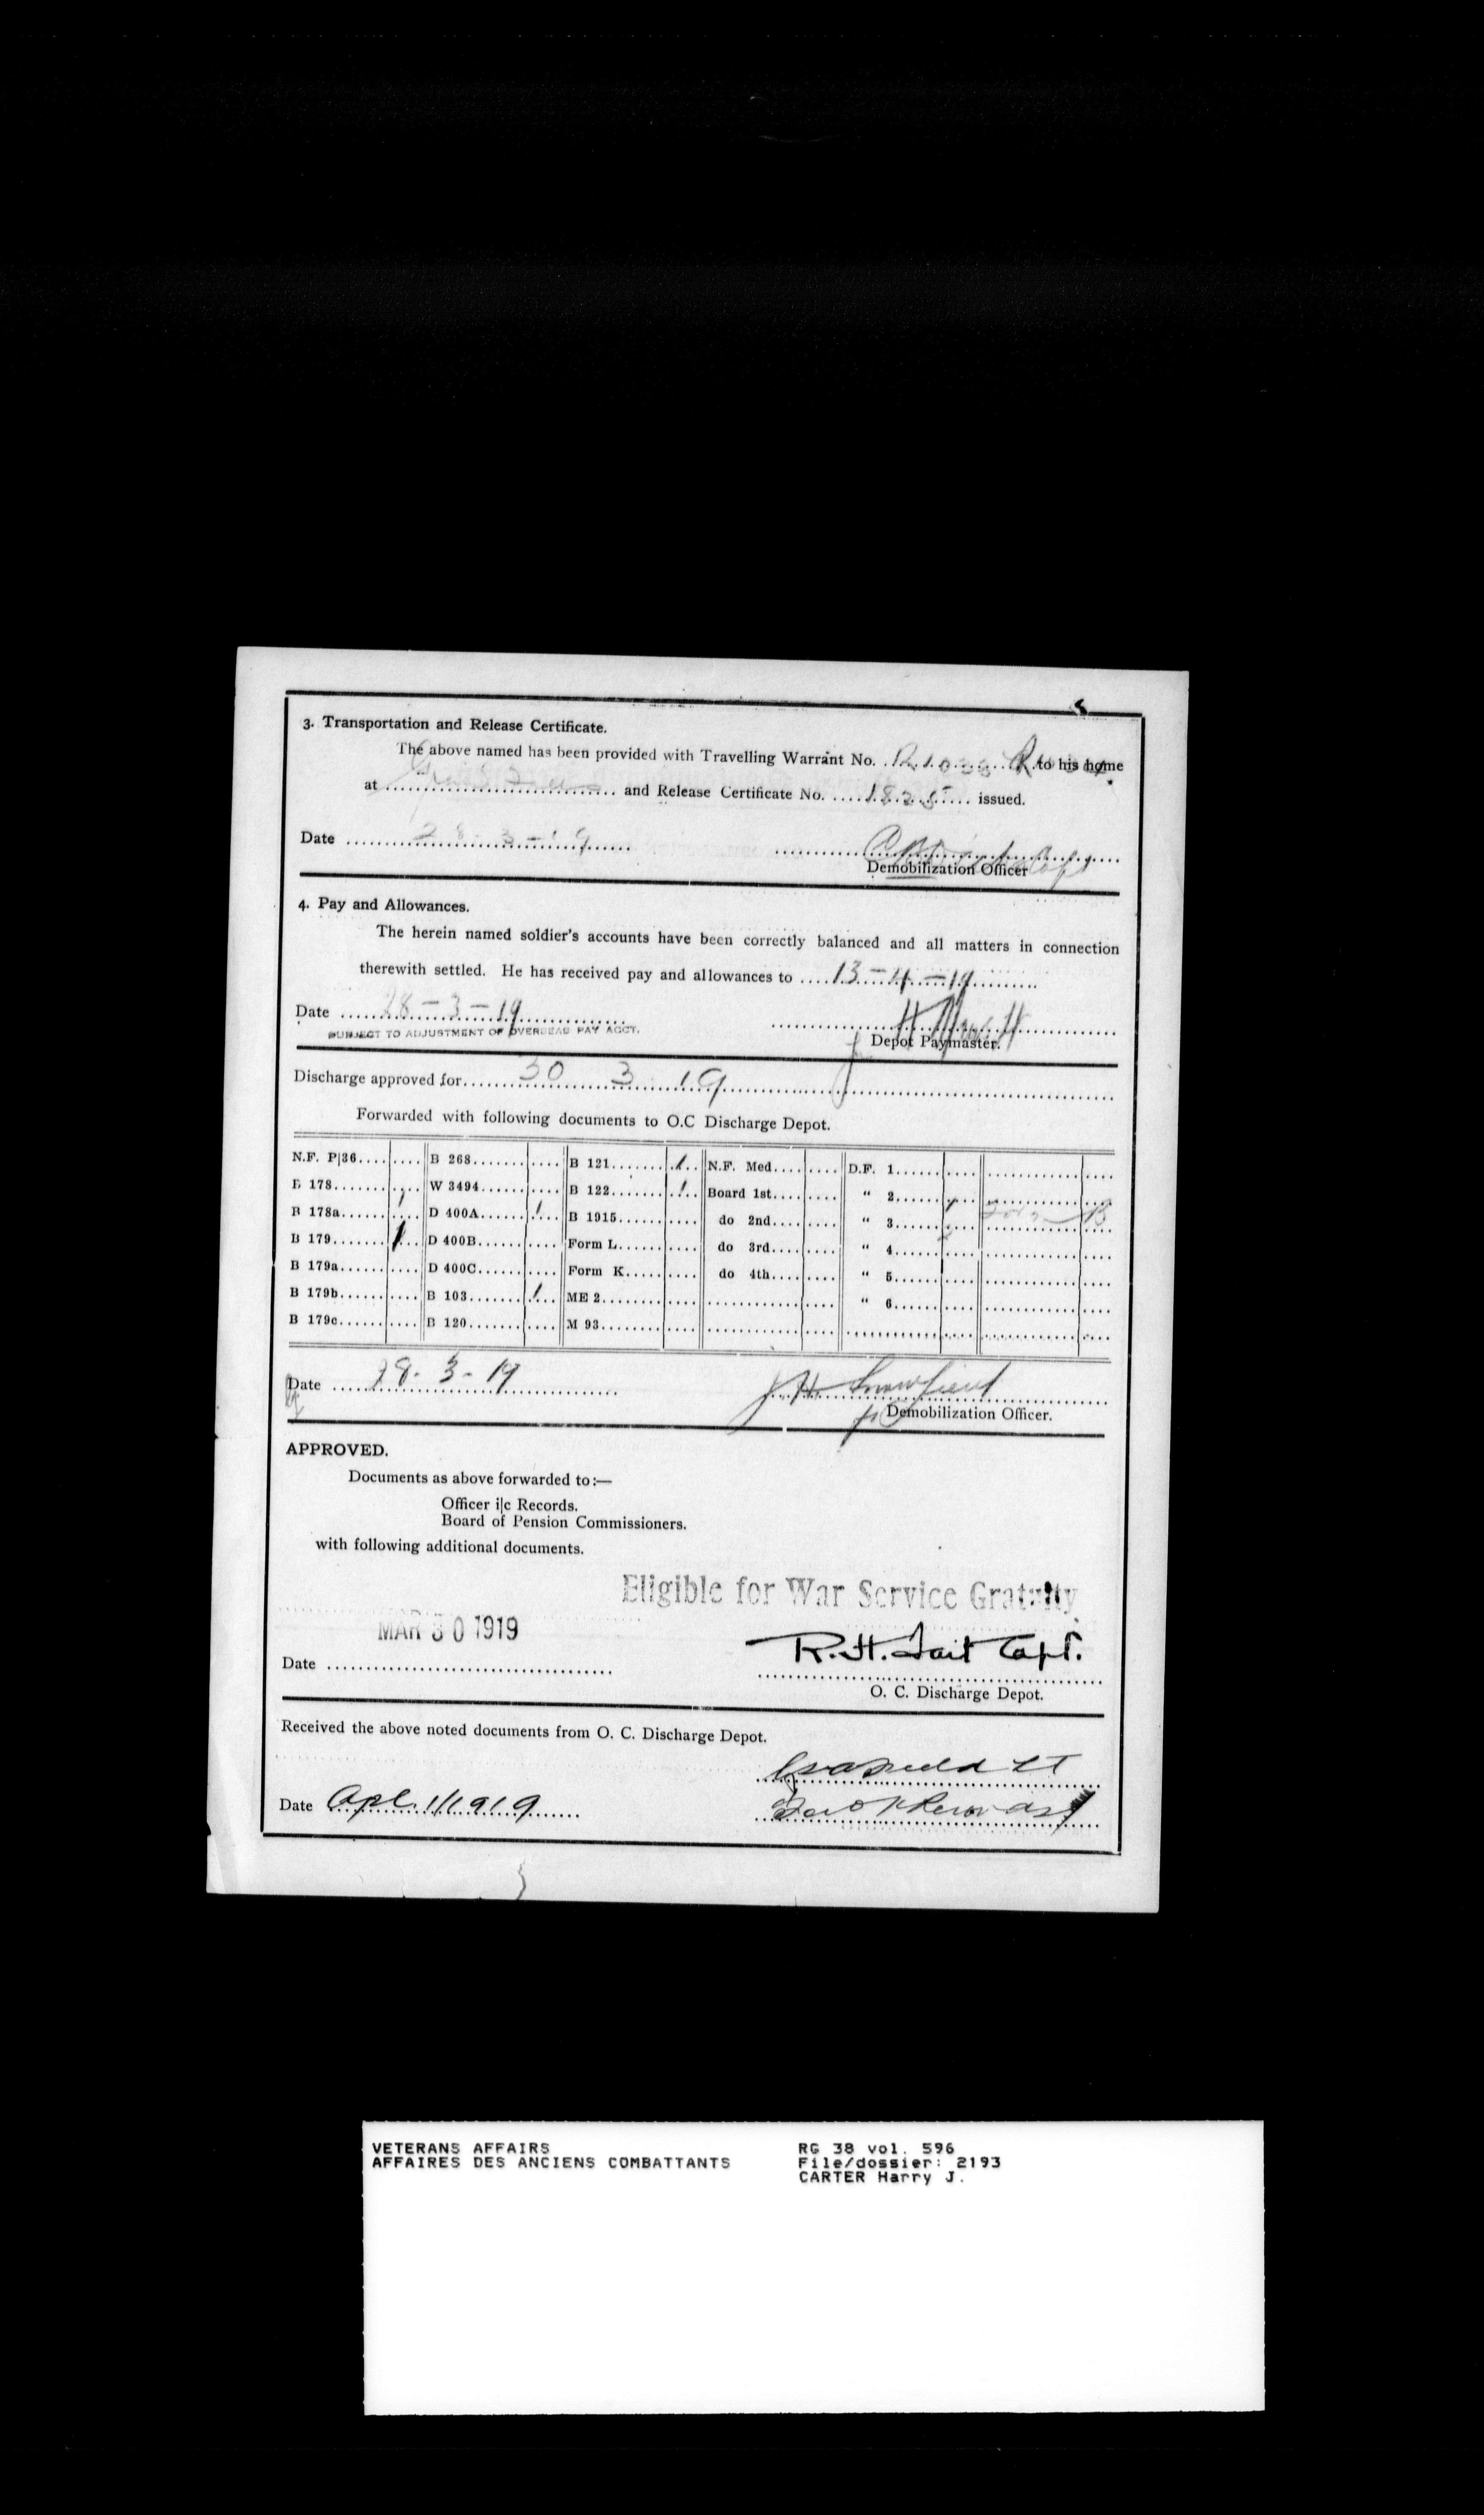 3. Transportation and Release Certificate.
The above named has been provided with Travelling Warrant No. R1038 to his home
at .......... and Release Certificate No. 1825 issued.
Date 28-3-19
Demobilization Officer
4. Pay and Allowances.
The herein named soldier's accounts have been correctly balanced and all matters in connection
therewith settled. He has received pay and allowances to 13-4-19
Date 28-3-19
SUBJECT TO ADJUSTMENT OF OVERSEAS PAY ACCT.
Depot Paymaster.
Discharge approved for 30 3 19
Forwarded with following documents to O.C Discharge Depot.
N.F. P|36 B 268 B 121 1 N.F. Med. D.F. 1
B 178 W 3494 B 122 1 Board 1st " 2
B 178a D 400A 1 B 1915 do 2nd " 3
B 179 1 D 400B Form L do 3rd " 4
B 179a D 400C Form K do 4th " 5
B 179b B 103 1 ME 2 " 6
B 179c B 120 M 93
Date 28-3-19
Demobilization Officer.
APPROVED.
Documents as above forwarded to:—
Officer i|c Records.
Board of Pension Commissioners.
with following additional documents.
Eligible for War Service Gratuity
MAR 30 1919
R.H. Tait Capt.
Date
O. C. Discharge Depot.
Received the above noted documents from O. C. Discharge Depot.
Lt
Date Apl. 1/1919
VETERANS AFFAIRS
AFFAIRES DES ANCIENS COMBATTANTS
RG 38 vol. 596
File/dossier: 2193
CARTER Harry J.